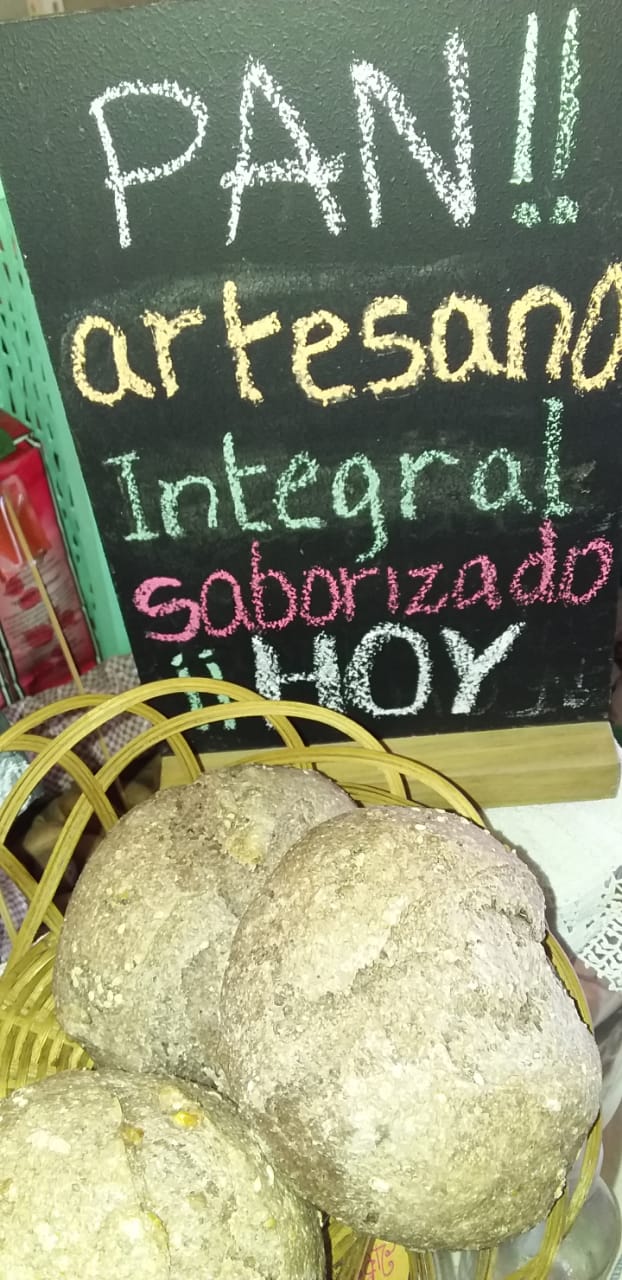 PAN!!
artesano
Integral
saborizado
¡¡HOY